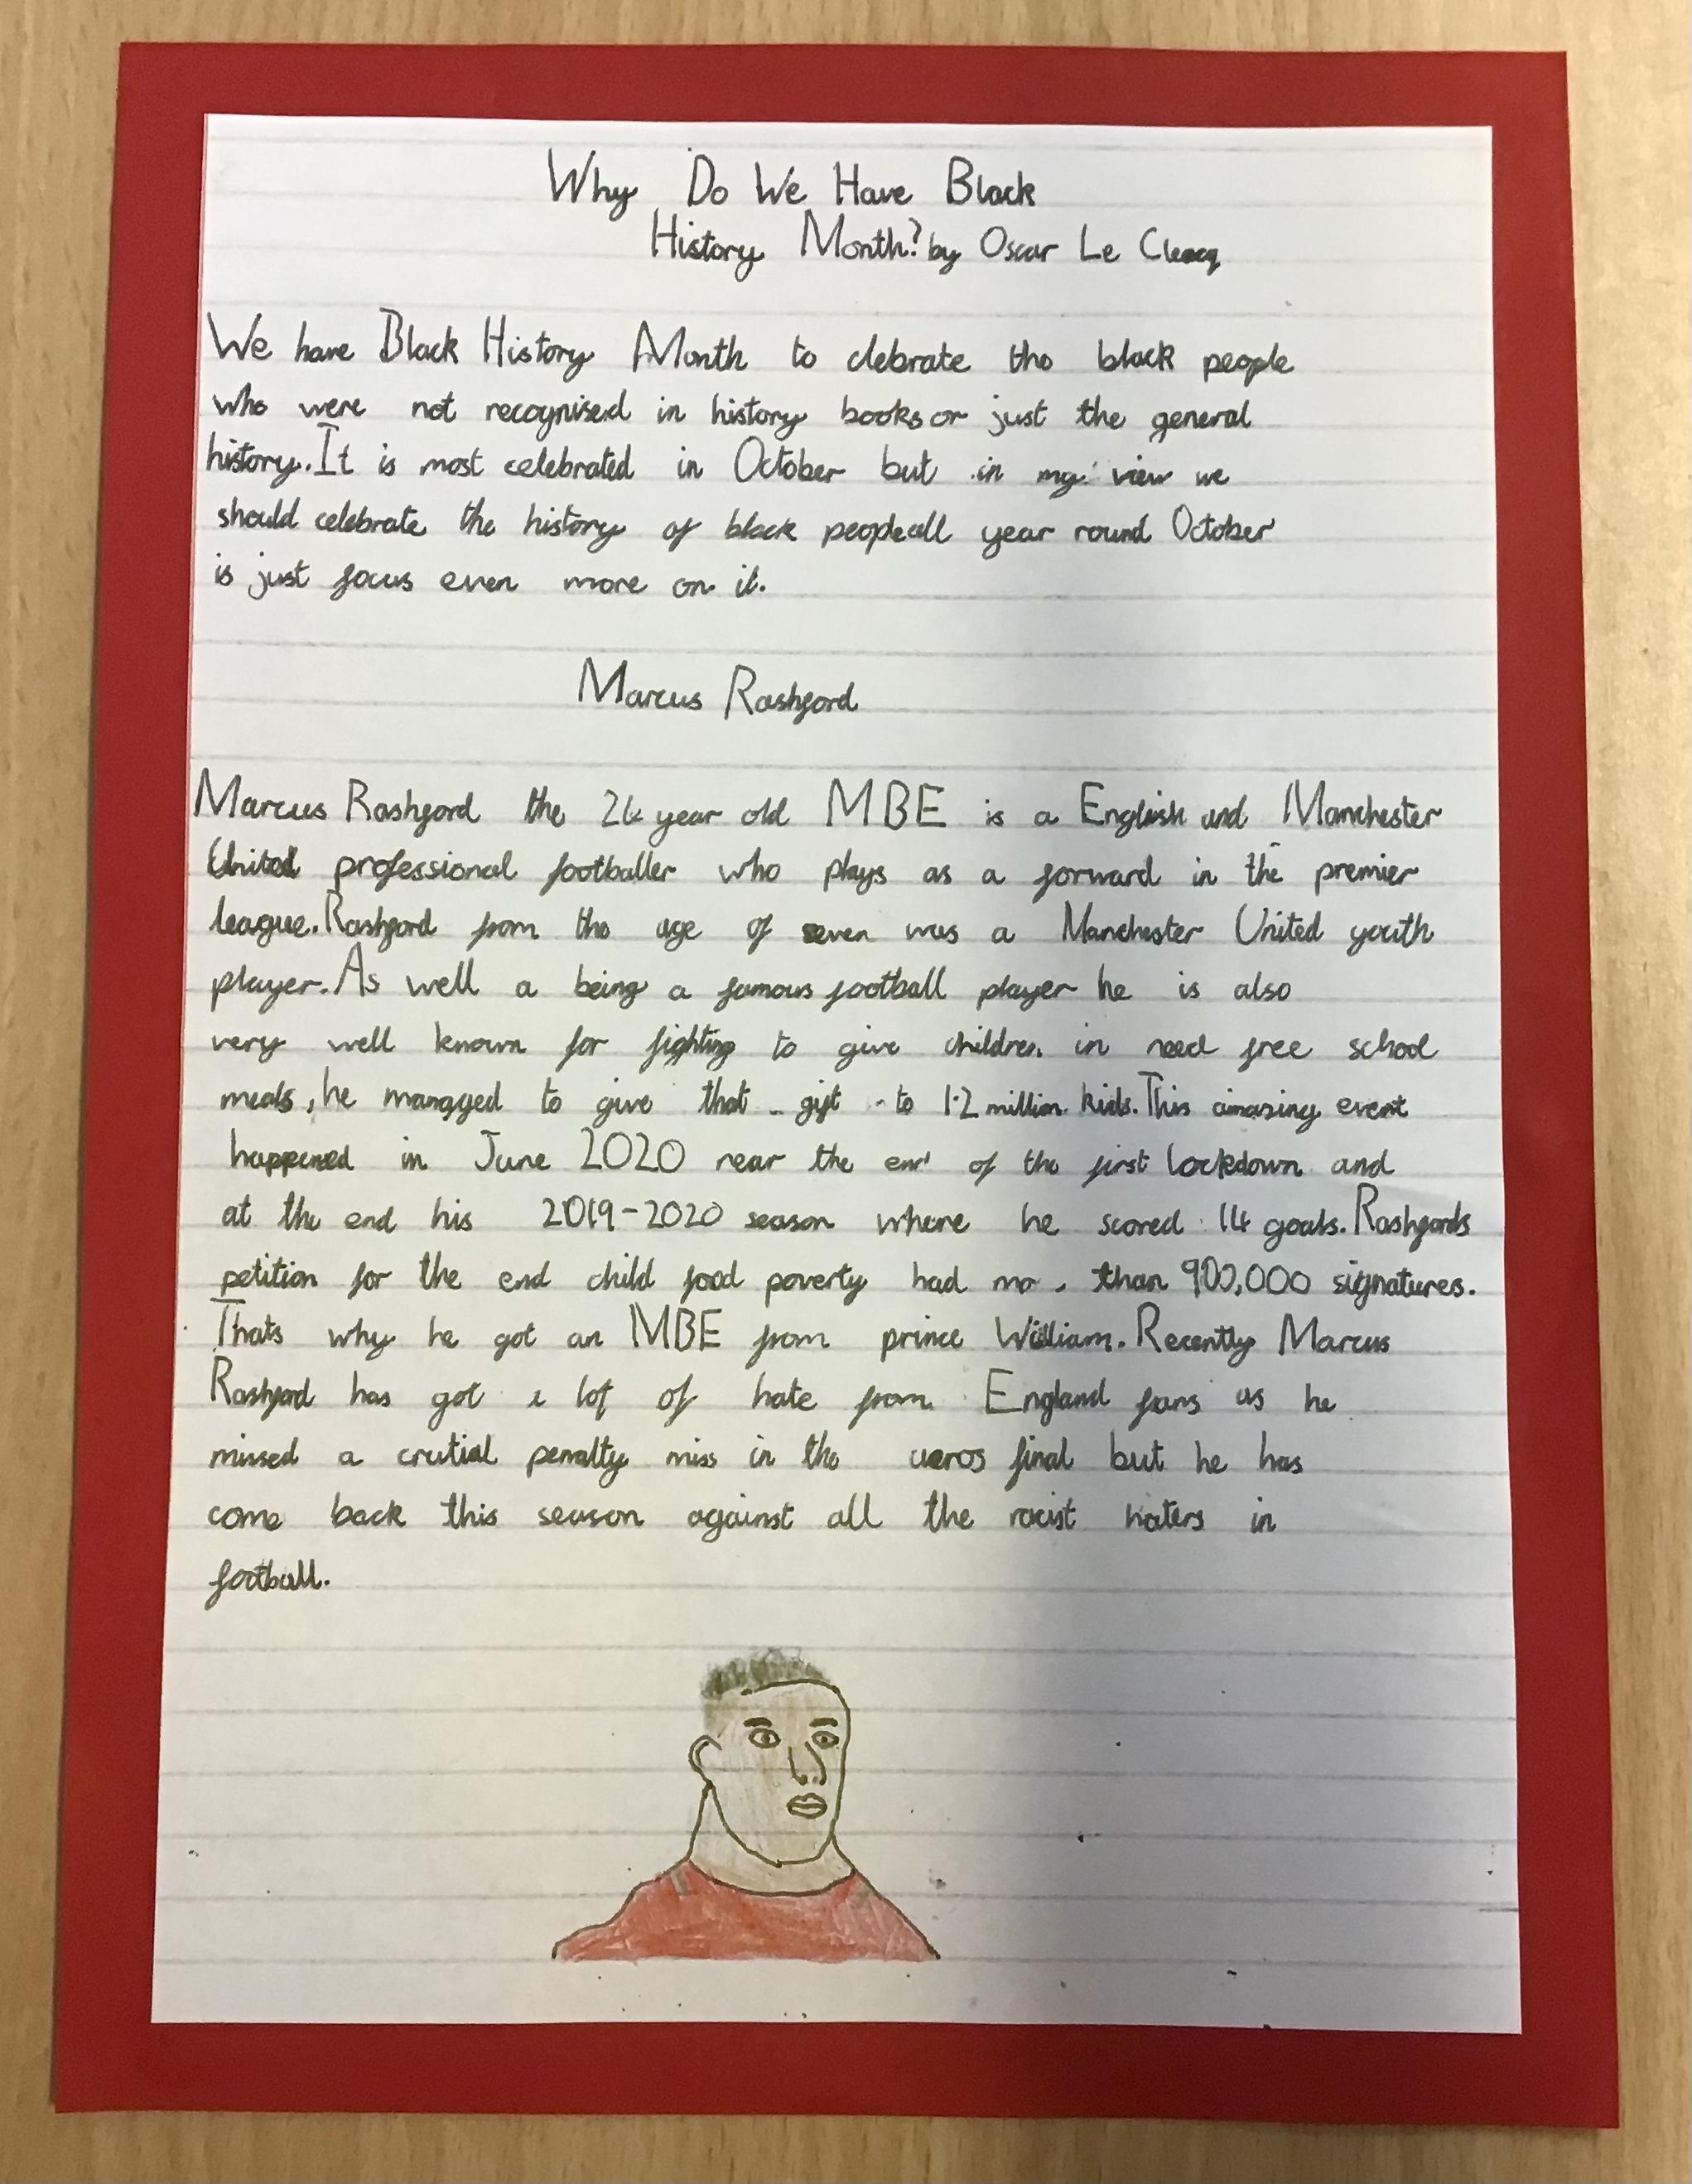 Why Do We Have Black
History Month? by Oscar Le Clercq
We have Black History Month to clebrate the black people
who were not recognised in history books or just the general
history. It is most celebrated in October but in my view we
should celebrate the history of black people all year round October
is just focus even more on it.
Marcus Rashford
Marcus Rashford the 24 year old MBE is a English and Manchester
United professional footballer who plays as a forward in the premier
league. Rashford from the age of seven was a Manchester United youth
player. As well a being a famous football player he is also
very well known for fighting to give children in need free school
meals, he managed to give that gift to 1.2 million kids. This amazing event
happened in June 2020 near the end of the first lockdown and
at the end his 2019-2020 season where he scored 14 goals. Rashfords
petition for the end child food poverty had than 900,000 signatures.
Thats why he got an MBE from prince William. Recently Marcus
Rashford has got a lot of hate from England fans as he
missed a crutial penalty miss in the ueros final but he has
come back this season against all the racist haters in
football.